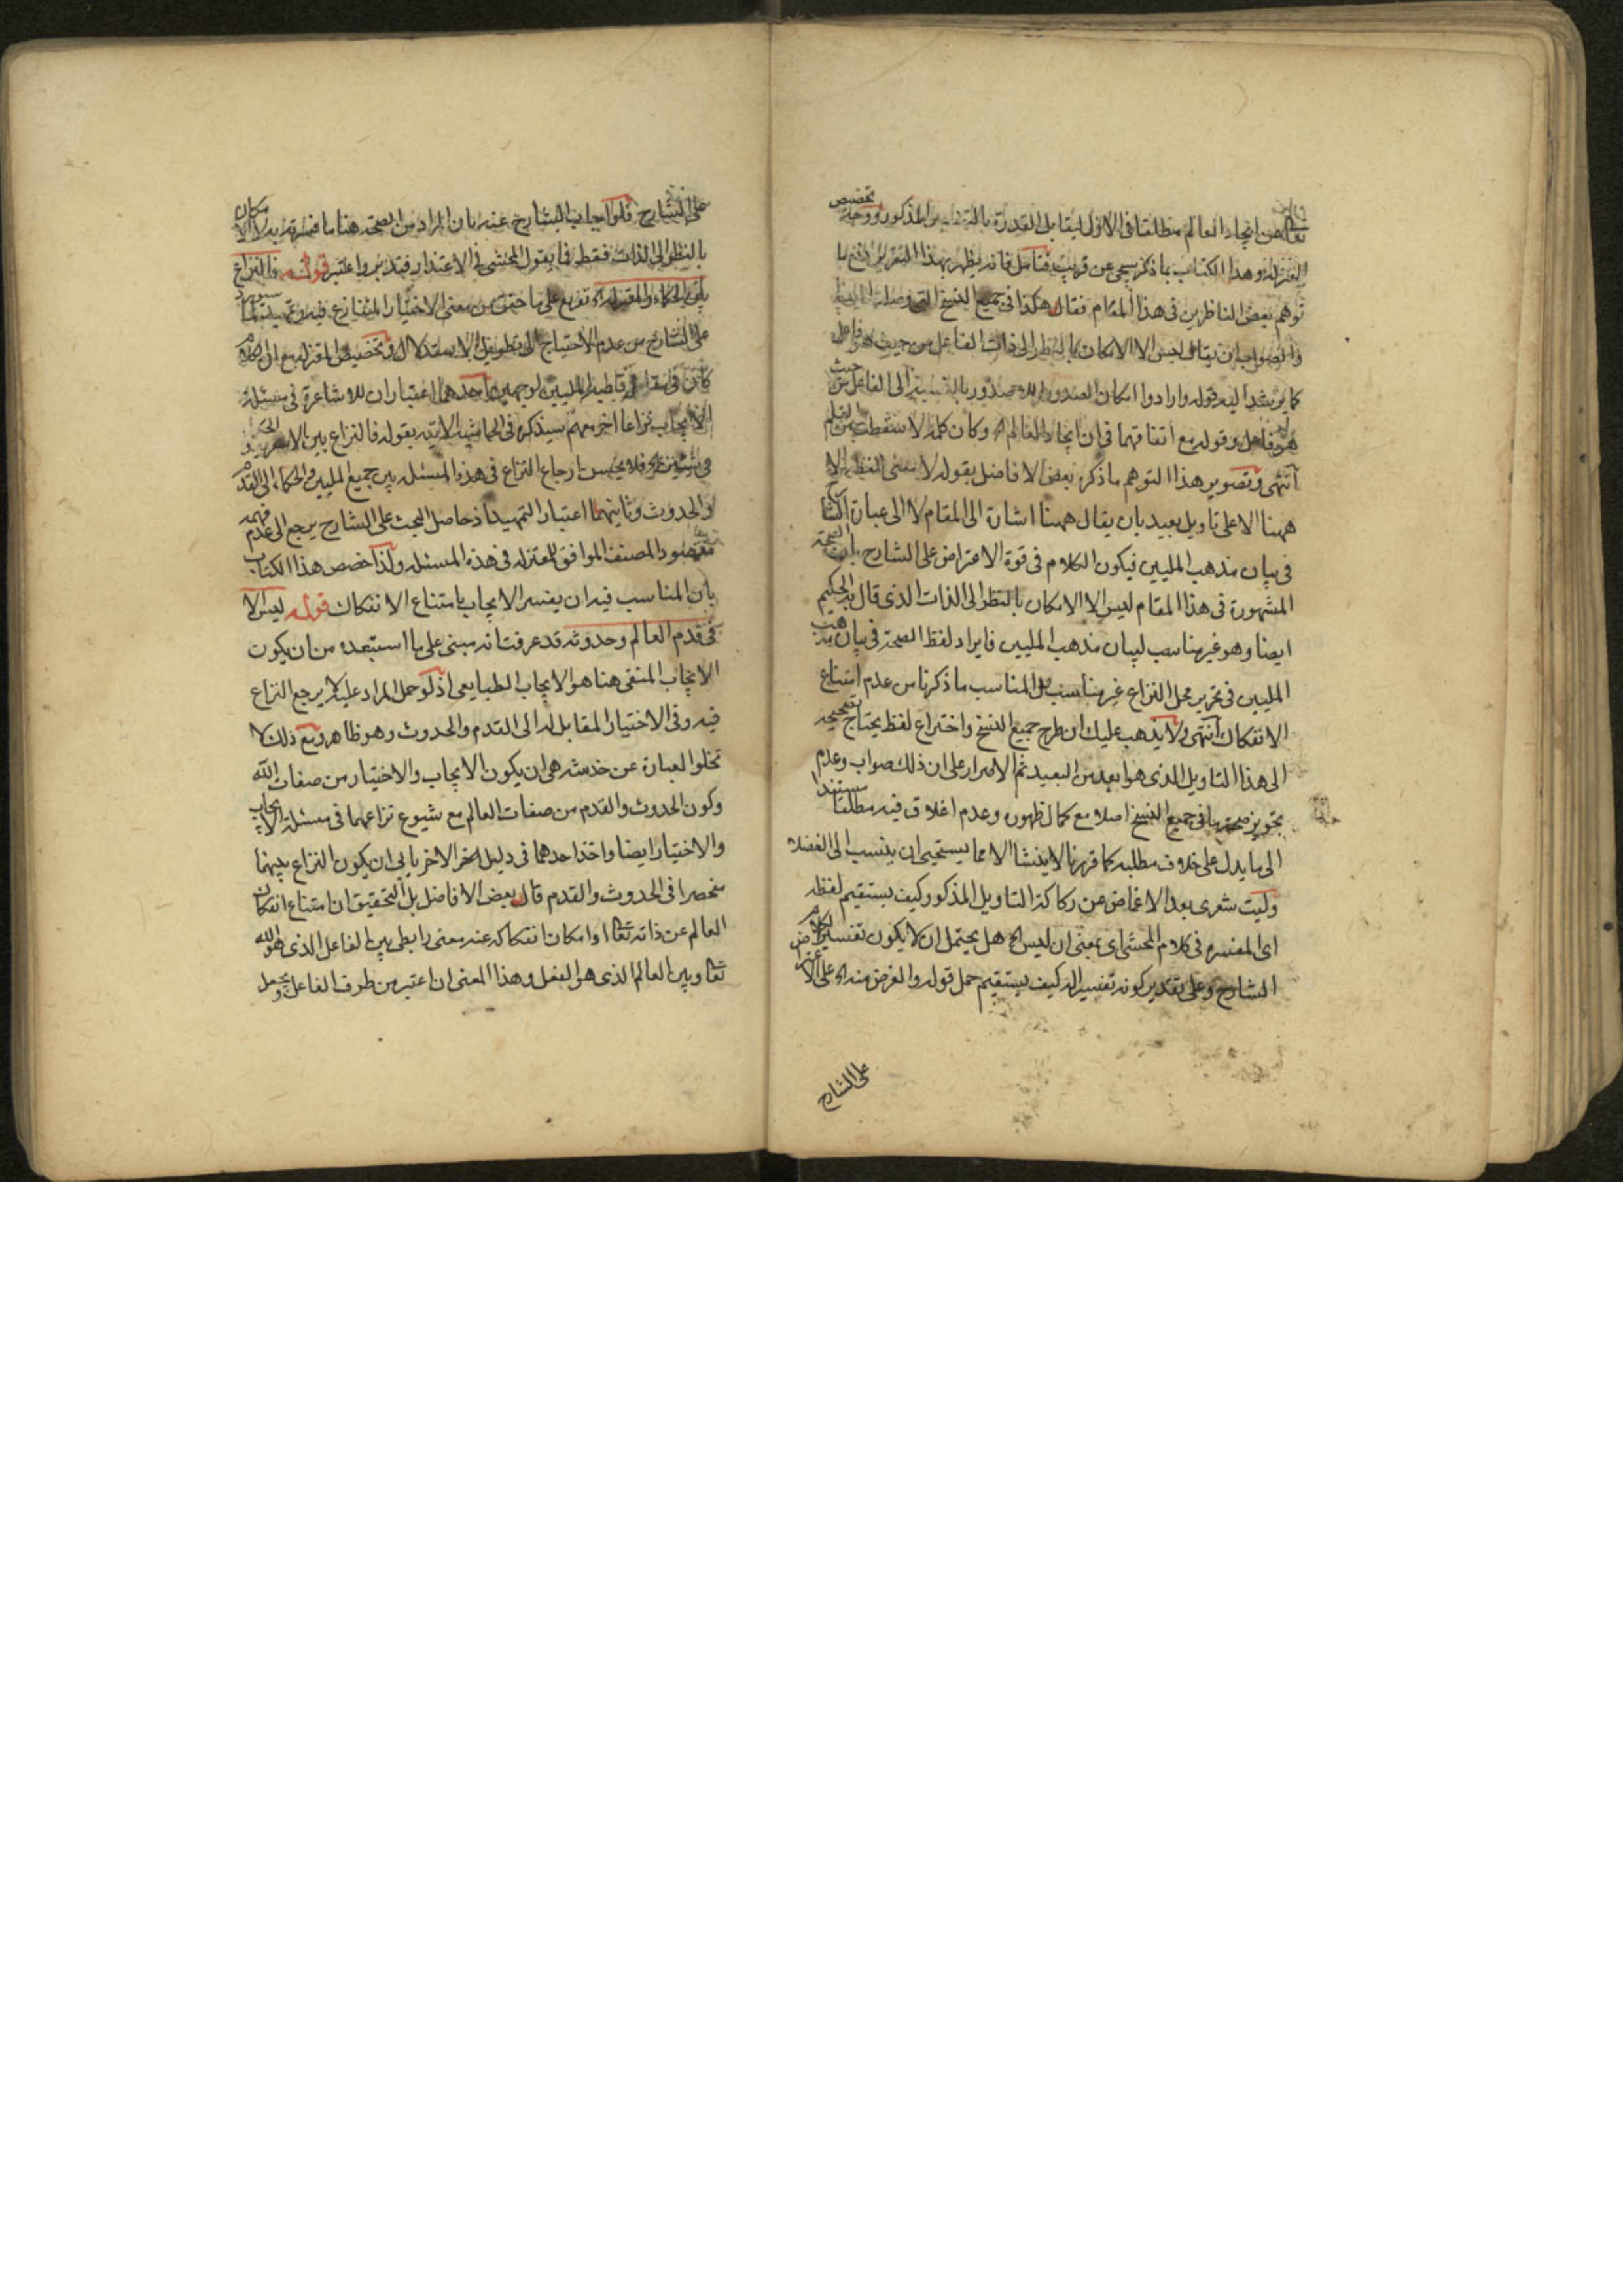 تعالى عن ايجاد العالم مطلقا فى الاول ليقابل القدرة بالتفسير المذكور ووجه تخصيص
المعتزلة وهذا الكتاب بما ذكر سيجئ عن قريب فتامل فانه يظهر بهذا التقرير اندفع ما
توهم بعض الناظرين فى هذا المقام فقال هكذا فى جميع النسخ التى
والصواب ان يقال ليس الا الامكان بالنظر الى ذات الفاعل من حيث هو فاعل
كما يرشد اليه قوله وارادوا امكان الصدور واللاصدور بالنسبة الى الفاعل من حيث
هو فاعل وقوله مع اتفاقهما فى ان ايجاد العالم الخ وكان كلمة لا سقطت من القلم
انتهى وتصوير هذا التوهم ما ذكره بعض الافاضل بقوله لا معنى للفظ
ههنا الا على تاويل بعيد بان يقال ههنا اشارة الى المقام لا الى عبارة الشارح
فى بيان مذهب المليين فيكون الكلام فى قوة الاعتراض على الشارح بان الصحة
المشهورة فى هذا المقام ليس الا الامكان بالنظر الى الذات الذى قال به الحكيم
ايضا وهو غير مناسب لبيان مذهب المليين فايراد لفظ الصحة فى بيان مذهب
المليين فى تحرير محل النزاع غير مناسب بل المناسب ما ذكرنا من عدم امتناع
الانفكاك انتهى ولا يذهب عليك ان طرح جميع النسخ واختراع لفظ يحتاج تصحيحه
الى هذا التاويل الذى هو ابعد من البعيد ثم الاصرار على ان ذلك صواب وعدم
تجويز صحة ما فى جميع النسخ اصلا مع كمال ظهوره وعدم اغلاق فيه مطلقا مستندا
الى ما يدل على خلاف مطلبه كما قررنا لا ينشا الا مما يستحيى ان ينسب الى الفضلاء
وليت شعرى بعد الاغماض عن ركاكة التاويل المذكور كيف يستقيم لفظ
اى المفسره فى كلام المحشى اى بمعنى ان ليس الخ هل يحتمل ان لا يكون تفسيرا لكلام
الشارح وعلى تقدير كونه تفسيرا له كيف يستقيم حمل قوله والغرض منه الخ على الاعتراض
على الشارح
على الشارح قلو اجاب الشارح عنه بان المراد من الصحة هنا ما فسرته به لا الامكان
بالنظر الى الذات فقط فما يقول المحشى فى الاعتذار فتدبر واعتبر قوله فالنزاع
بين الحكماء والمعتزلة الخ تفريع على ما حقق من معنى الاختيار المتنازع فيه
على الشارح من عدم الاحتياج الى تطويل الاستدلال وتخصيص المعتزلة مع ان الكلام
كان فى قاطبة المليين لوجهين احدهما اعتبار ان للاشاعرة فى مسئلة
الايجاب نزاعا اخر معهم سيذكره فى الحاشية الاتية بقوله فالنزاع بين
فى شيئين الخ فلا يحسن ارجاع النزاع فى هذه المسئلة بين جميع المليين والحكماء الى القدم
والحدوث وثانيهما اعتبار التمهيد اذ حاصل البحث على الشارح يرجع الى عدم فهمه
مقصود المصنف الموافق للمعتزلة فى هذه المسئلة ولذا خصص هذا الكتاب
بان المناسب فيه ان يفسر الايجاب بامتناع الانفكاك قوله ليس الا
فى قدم العالم وحدوثه قد عرفت انه مبنى على ما استبعده من ان يكون
الايجاب المنفى هنا هو الايجاب الطبايعى اذ لو حمل المراد عليه لا يرجع النزاع
فيه وفى الاختيار المقابل له الى القدم والحدوث وهو ظاهر ومع ذلك لا
تخلوا العبارة عن خدشة هى ان يكون الايجاب والاختيار من صفات الله
وكون الحدوث والقدم من صفات العالم مع شيوع نزاعهما فى مسئلة الايجاب
والاختيار ايضا واخذ احدهما فى دليل الاخر يابى ان يكون النزاع بينهما
منحصرا فى الحدوث والقدم قال بعض الافاضل بل التحقيق ان امتناع انفكاك
العالم عن ذاته تعالى او امكان انفكاكه عنه معنى رابطى بين الفاعل الذى هو الله
تعالى وبين العالم الذى هو الفعل وهذا المعنى ان اعتبر من طرف الفاعل ويجعل